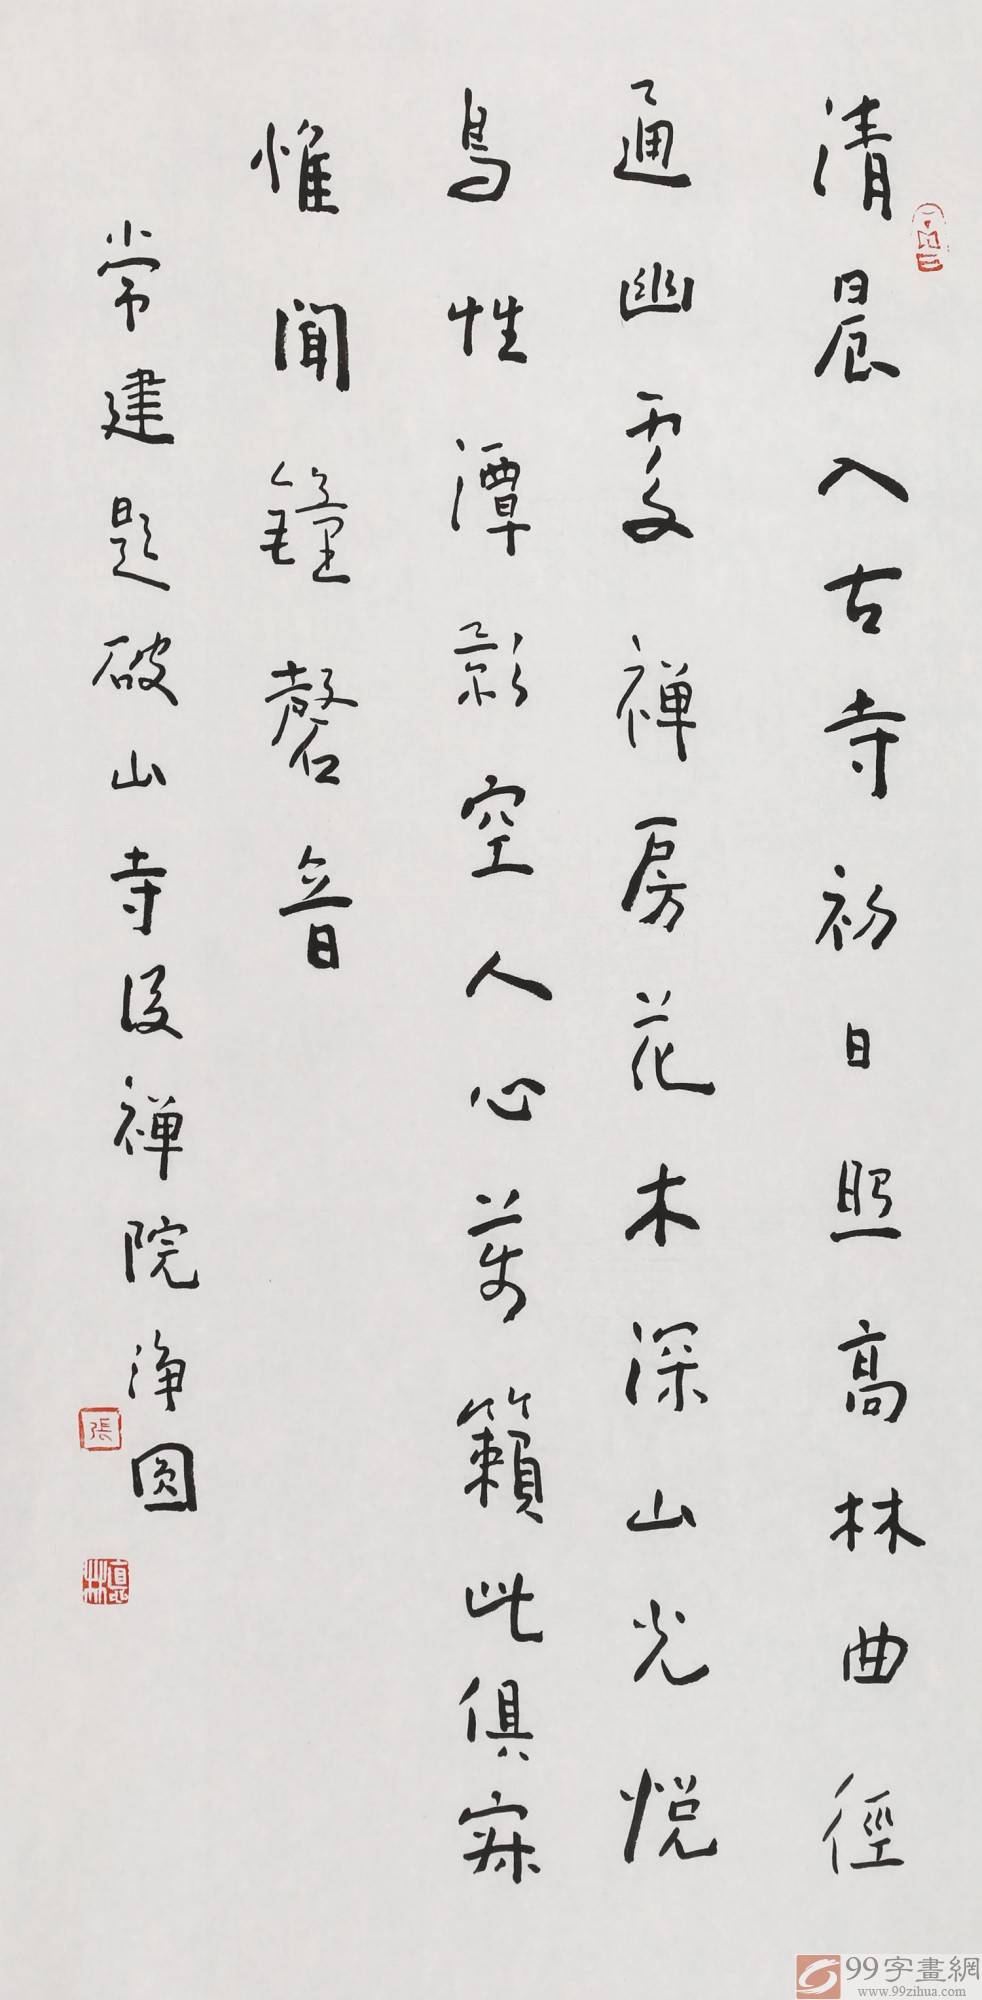 清晨入古寺初日照高林曲徑
通幽處禅房花木深山光悦
鳥性潭影空人心萬籟此俱寂
惟聞鐘磬音
常建題破山寺後禅院淨圓
張
99字畫網
www.99zihua.com